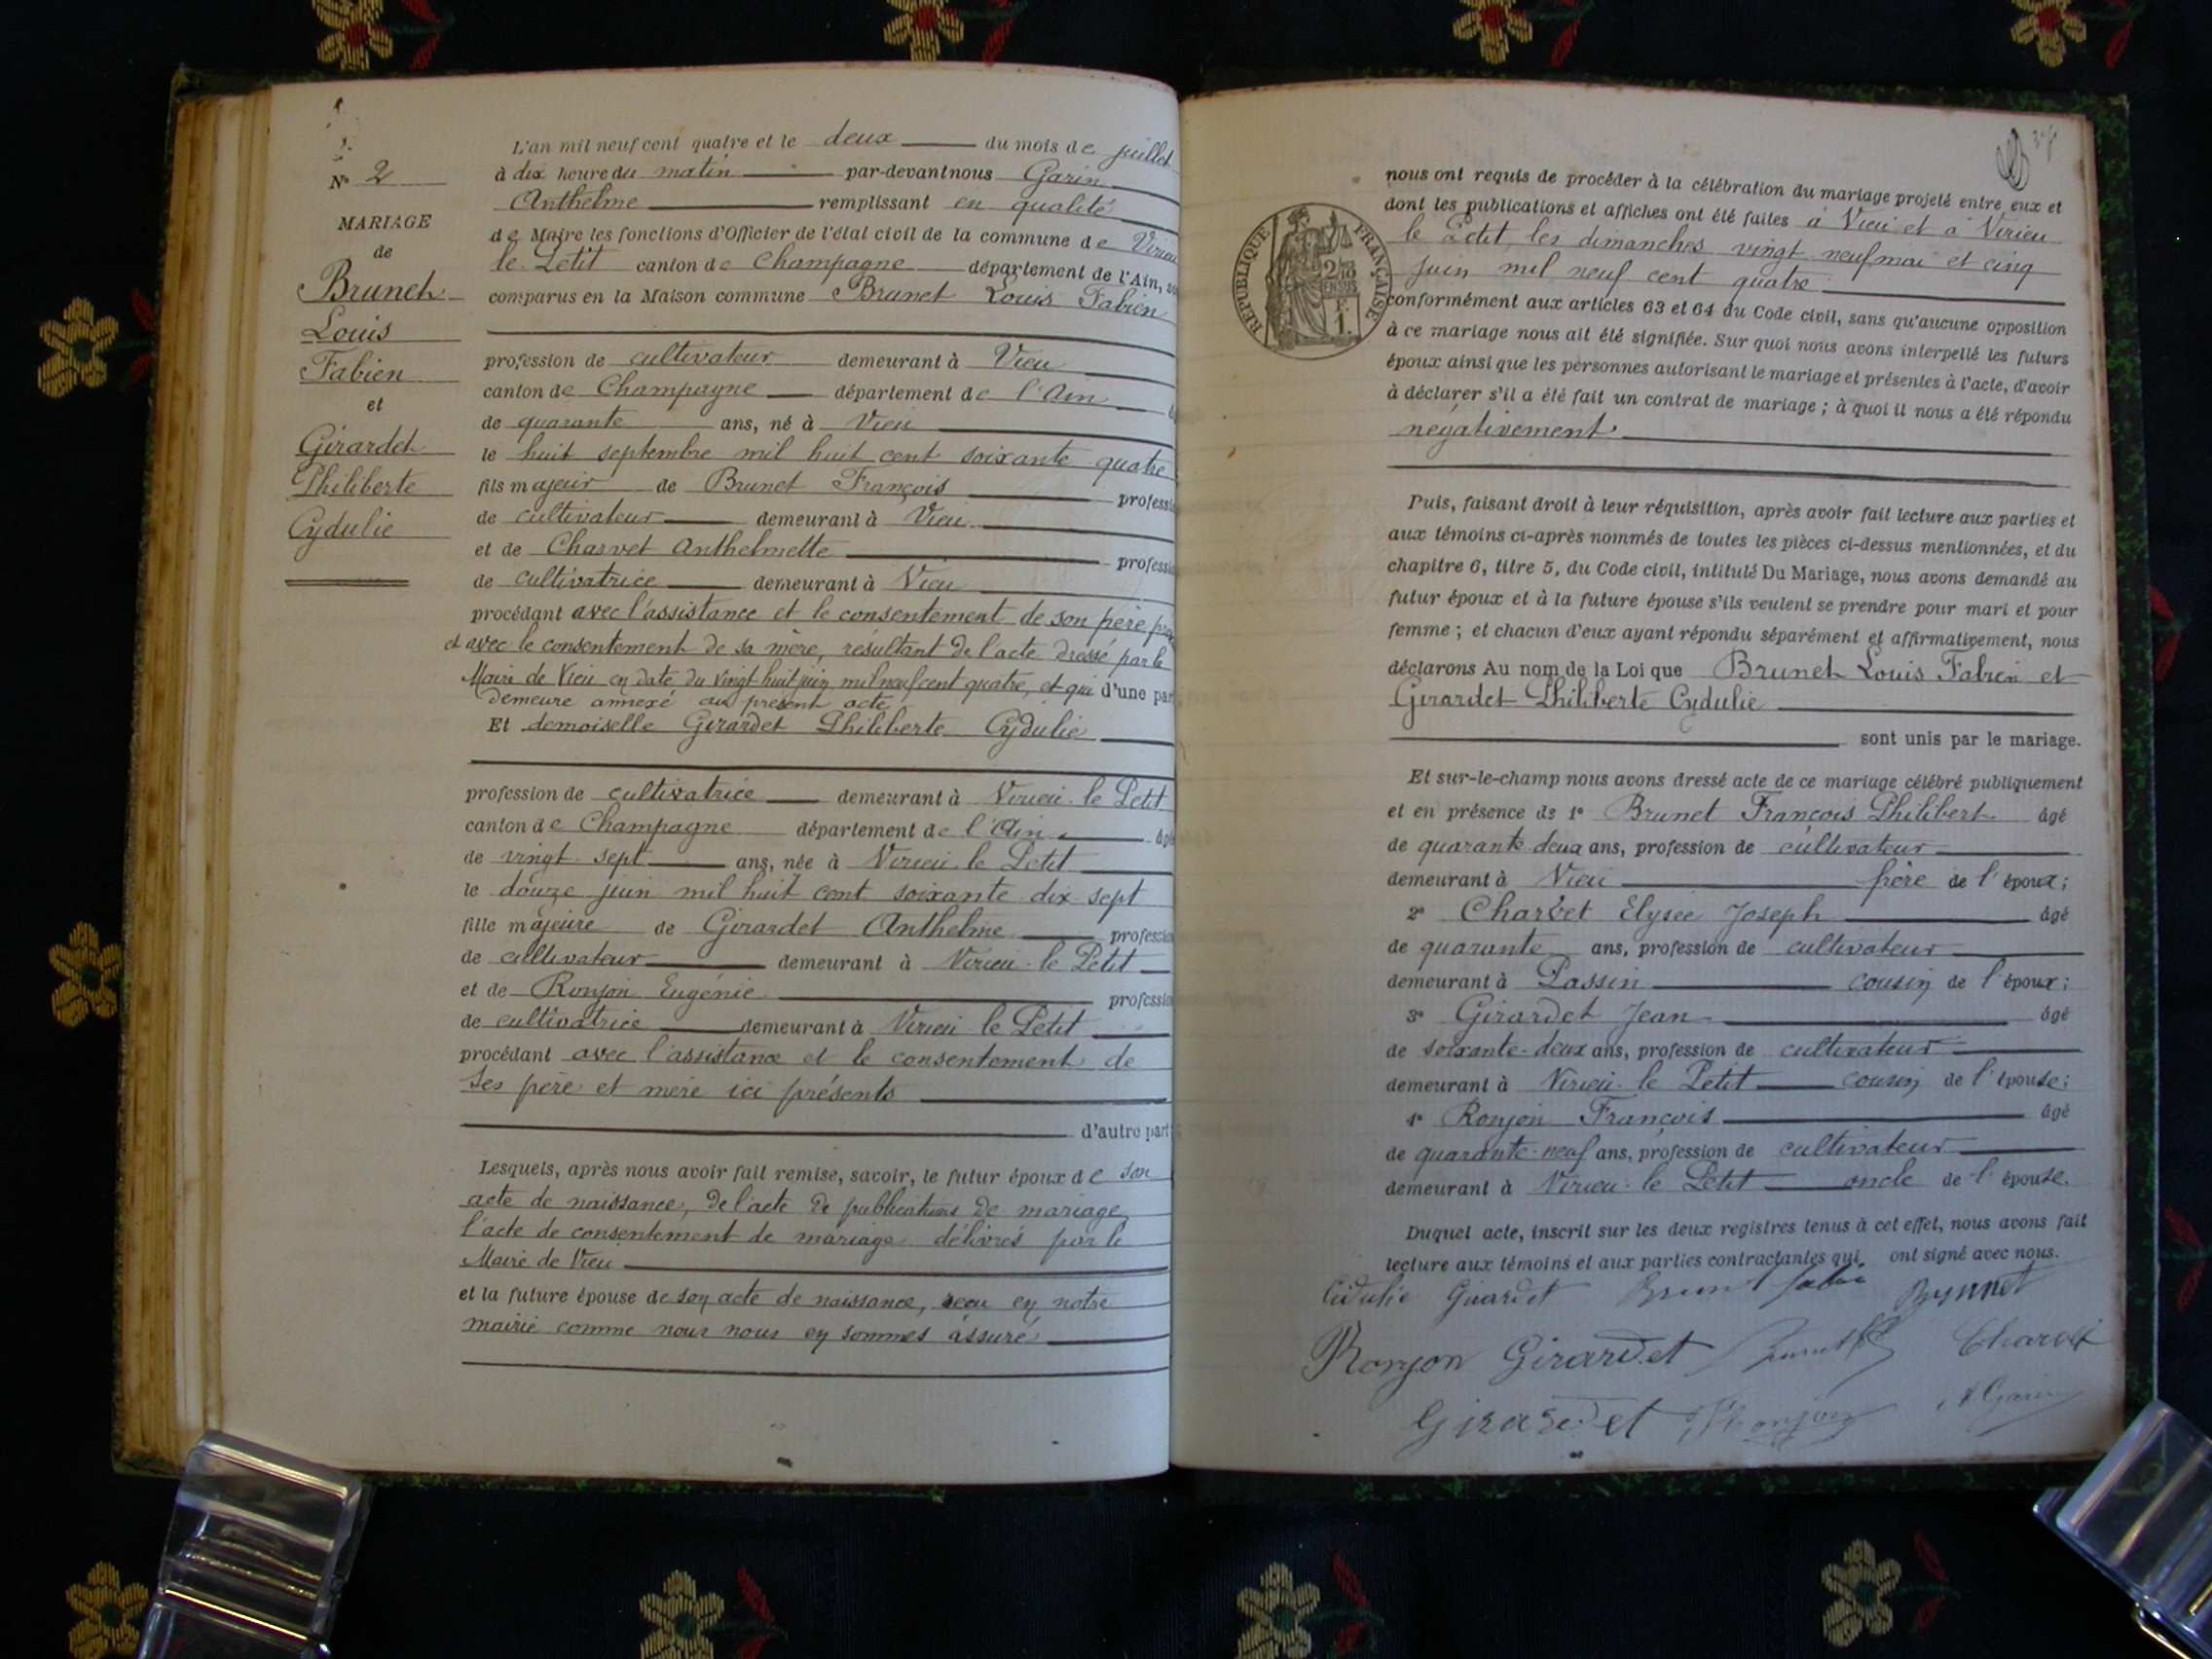 N° 2
MARIAGE
de
Brunet
Louis
Fabien
et
Girardet
Philiberte
Cydulie
L'an mil neuf cent quatre et le deux du mois de juillet
à dix heure du matin par-devant nous Garin
Anthelme remplissant en qualité
de Maire les fonctions d'Officier de l'état civil de la commune de Virieu
le Petit canton de Champagne département de l'Ain,
comparus en la Maison commune Brunet Louis Fabien
profession de cultivateur demeurant à Vieu
canton de Champagne département de l'Ain
de quarante ans, né à Vieu
le huit septembre mil huit cent soixante quatre
fils majeur de Brunet François professi
de cultivateur demeurant à Vieu
et de Charvet Anthelmette professi
de cultivatrice demeurant à Vieu
procédant avec l'assistance et le consentement de son père
et avec le consentement de sa mère, résultant de l'acte dressé par le
Maire de Vieu en date du vingt-huit juin mil neuf cent quatre, et qui d'une part
demeure annexé au présent acte
Et demoiselle Girardet Philiberte Cydulie
profession de cultivatrice demeurant à Virieu-le-Petit
canton de Champagne département de l'Ain âgé
de vingt-sept ans, née à Virieu-le-Petit
le douze juin mil huit cent soixante-dix-sept
fille majeure de Girardet Anthelme profession
de cultivateur demeurant à Virieu-le-Petit
et de Ronjon Eugénie professio
de cultivatrice demeurant à Virieu le Petit
procédant avec l'assistance et le consentement de
ses père et mère ici présents
d'autre part
Lesquels, après nous avoir fait remise, savoir, le futur époux de son
acte de naissance, de l'acte de publications de mariage
l'acte de consentement de mariage délivrés par le
Maire de Vieu
et la future épouse de son acte de naissance, reçu en notre
mairie comme nous nous en sommes assuré
RÉPUBLIQUE FRANÇAISE
2/10 EN SUS
F.
1.
nous ont requis de procéder à la célébration du mariage projeté entre eux et
dont les publications et affiches ont été faites à Vieu et à Virieu
le Petit, les dimanches vingt neuf mai et cinq
juin mil neuf cent quatre
conformément aux articles 63 et 64 du Code civil, sans qu'aucune opposition
à ce mariage nous ait été signifiée. Sur quoi nous avons interpellé les futurs
époux ainsi que les personnes autorisant le mariage et présentes à l'acte, d'avoir
à déclarer s'il a été fait un contrat de mariage ; à quoi il nous a été répondu
négativement
Puis, faisant droit à leur réquisition, après avoir fait lecture aux parties et
aux témoins ci-après nommés de toutes les pièces ci-dessus mentionnées, et du
chapitre 6, titre 5, du Code civil, intitulé Du Mariage, nous avons demandé au
futur époux et à la future épouse s'ils veulent se prendre pour mari et pour
femme ; et chacun d'eux ayant répondu séparément et affirmativement, nous
déclarons Au nom de la Loi que Brunet Louis Fabien et
Girardet Philiberte Cydulie
sont unis par le mariage.
Et sur-le-champ nous avons dressé acte de ce mariage célébré publiquement
et en présence de 1° Brunet François Philibert âgé
de quarante-deux ans, profession de cultivateur
demeurant à Vieu frère de l'époux ;
2° Charvet Elysée Joseph âgé
de quarante ans, profession de cultivateur
demeurant à Passin cousin de l'époux ;
3° Girardet Jean âgé
de soixante-deux ans, profession de cultivateur
demeurant à Virieu-le-Petit cousin de l'épouse ;
4° Ronjon François âgé
de quarante-neuf ans, profession de cultivateur
demeurant à Virieu-le-Petit oncle de l'épouse.
Duquel acte, inscrit sur les deux registres tenus à cet effet, nous avons fait
lecture aux témoins et aux parties contractantes qui ont signé avec nous.
Cidulie Girardet Brunet fabien Brunet
Ronjon Girardet Charvet
Girardet Ronjon A Garin